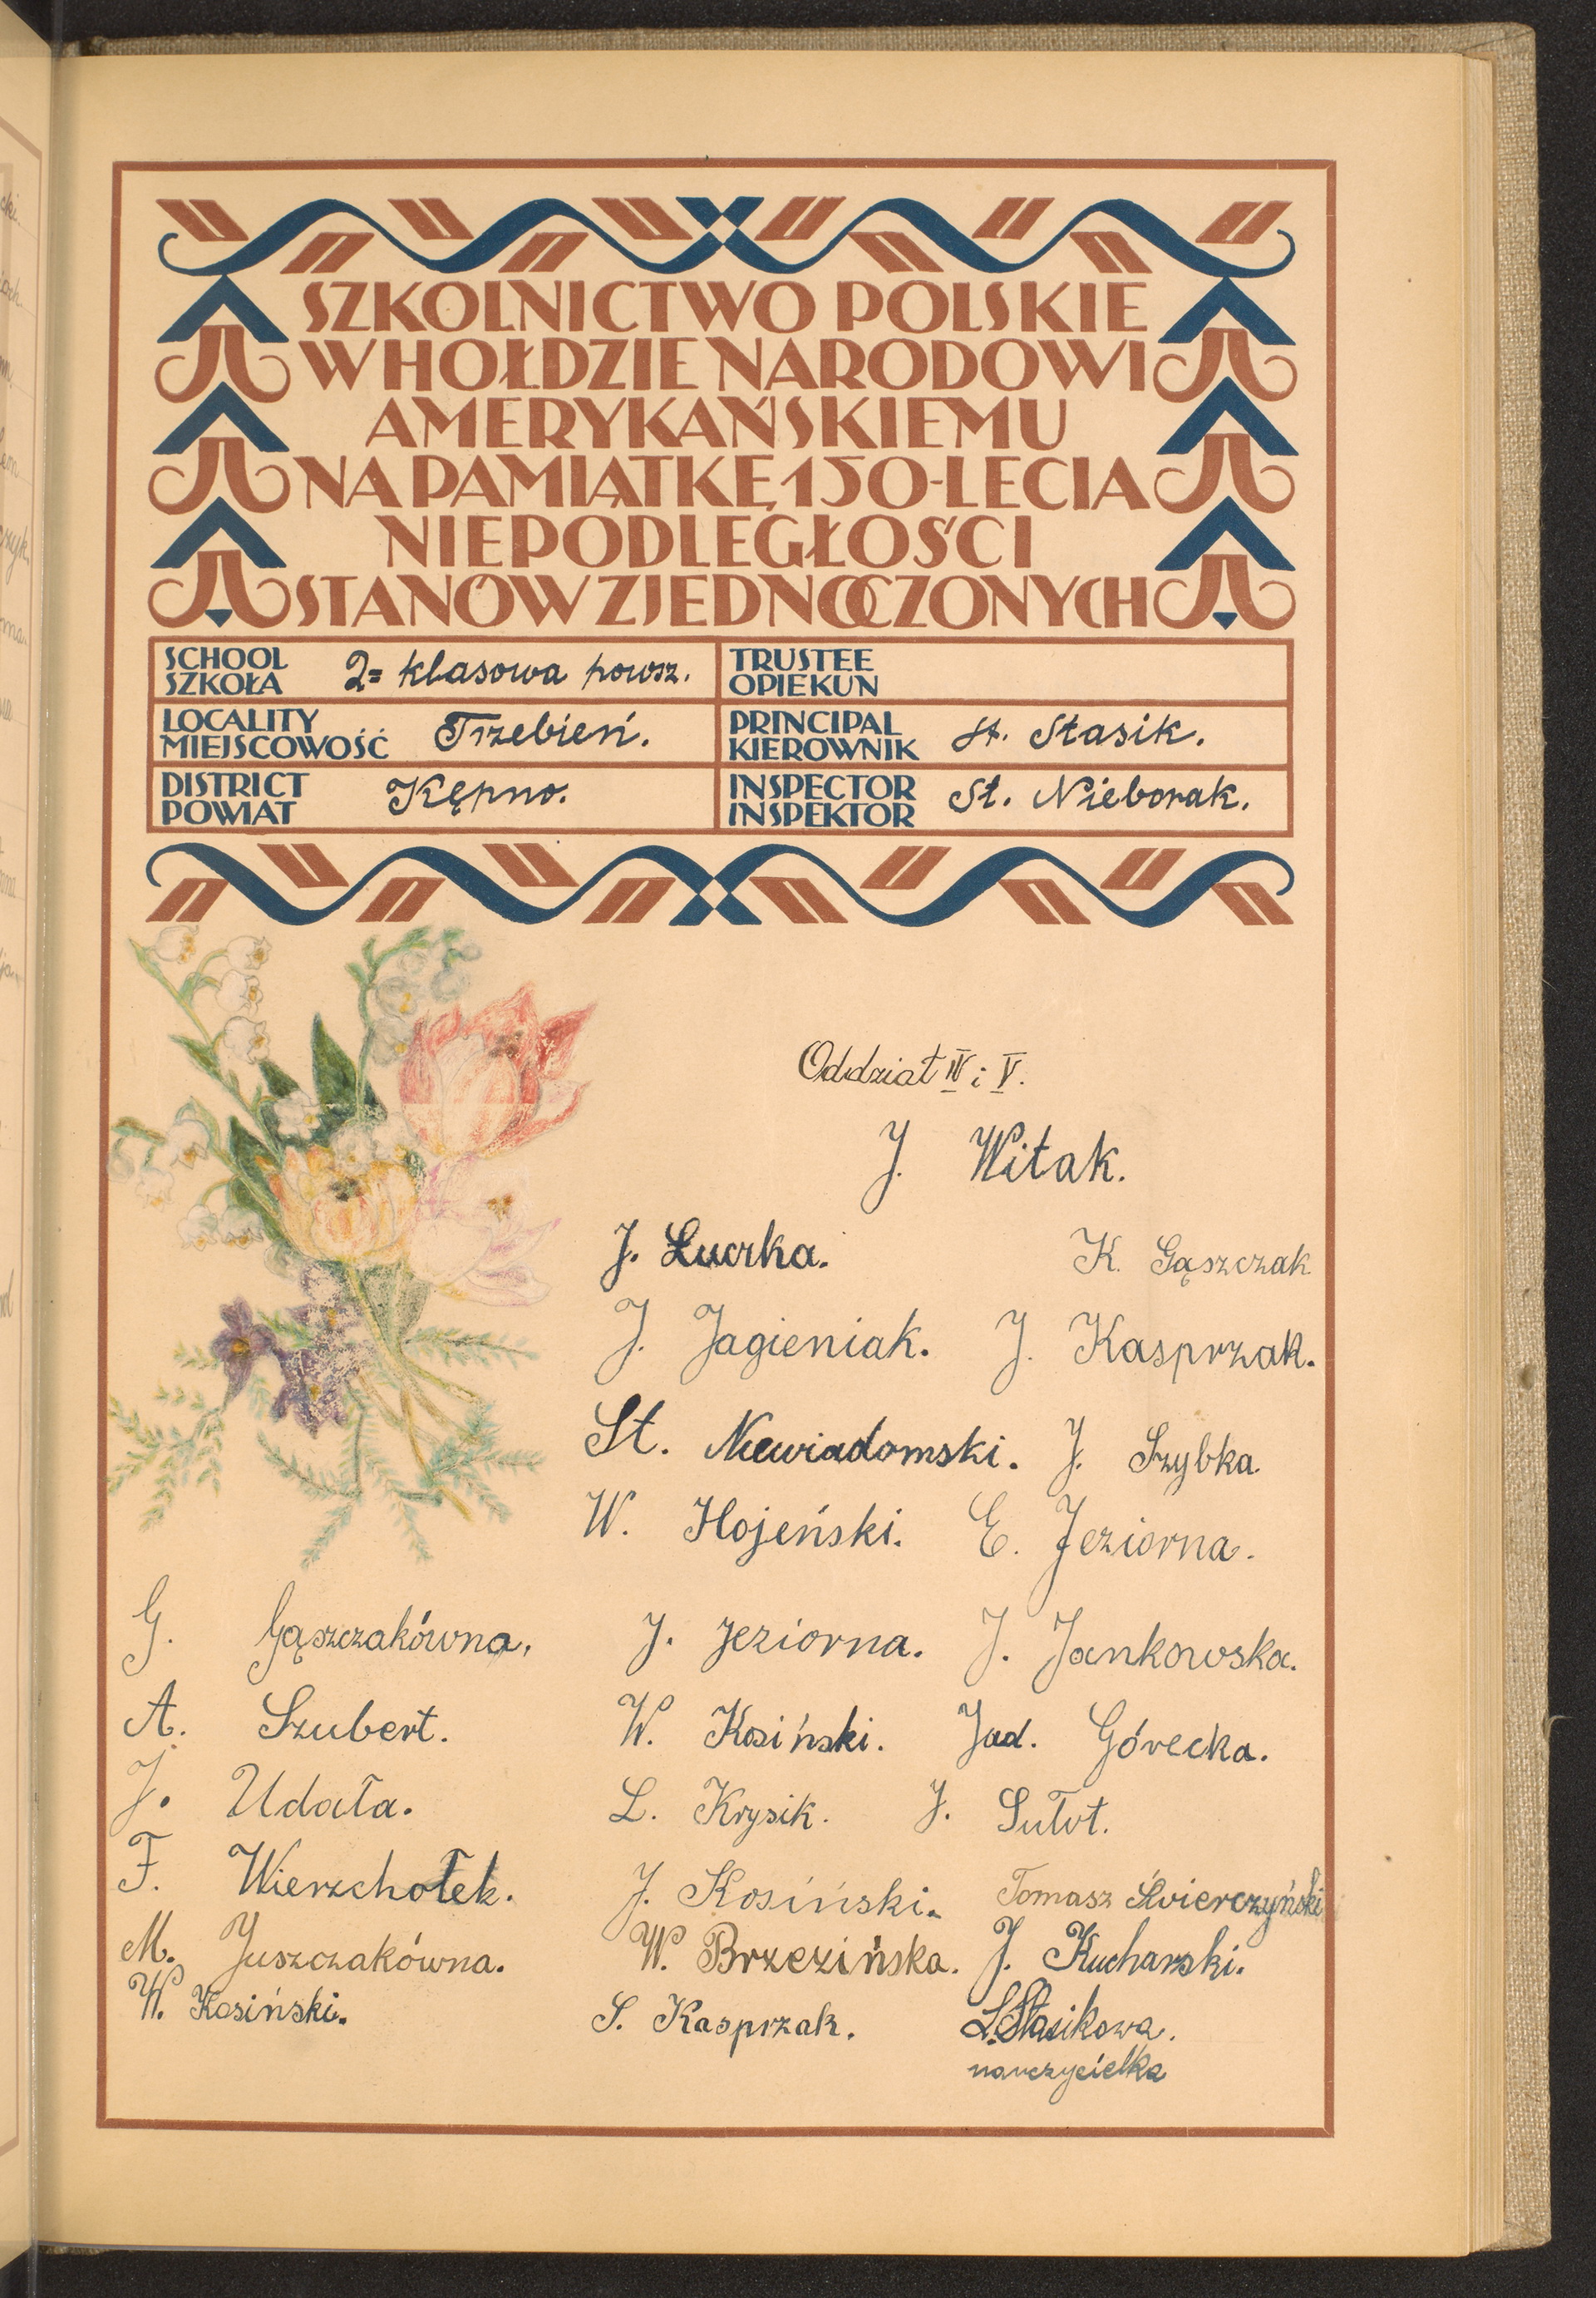 SZKOLNICTWO POLSKIE
W HOŁDZIE NARODOWI
AMERYKAŃSKIEMU
NA PAMIĄTKĘ 150-LECIA
NIEPODLEGŁOŚCI
STANÓW ZJEDNOCZONYCH
SCHOOL
SZKOŁA 2= klasowa powsz.
TRUSTEE
OPIEKUN
LOCALITY
MIEJSCOWOŚĆ Trzebień.
PRINCIPAL
KIEROWNIK St. Stasik.
DISTRICT
POWIAT Kępno.
INSPECTOR
INSPEKTOR St. Nieborak.
Oddział IV i V.
J. Witak.
J. Luczka. K. Gąszczak
J. Jagieniak. J. Kasprzak.
St. Niewiadomski. J. Szybka.
W. Hojeński. E. Jeziorna.
G. Gąszczakówna. J. Jeziorna. J. Jankowska.
A. Szubert. W. Kosiński. Jad. Górecka.
J. Udała. L. Krysik. J. Sułot.
F. Wierzchołek. J. Kosiński. Tomasz Świerczyński
M. Juszczakówna. W. Brzezińska. J. Kucharski.
W. Kosiński. S. Kasprzak. L. Stasikowa.
nauczycielka